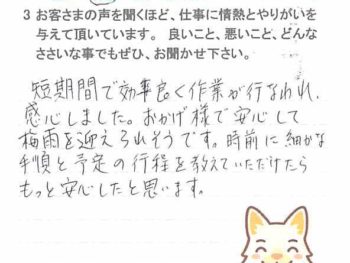 3 お客さまの声を聞くほど、仕事に情熱とやりがいを
与えて頂いています。 良いこと、悪いこと、どんな
ささいな事でもぜひ、お聞かせ下さい。
短期間で効率良く作業が行なわれ、
感心しました。おかげ様で安心して
梅雨を迎えられそうです。時前に細かな
手順と予定の行程を教えていただけたら
もっと安心したと思います。